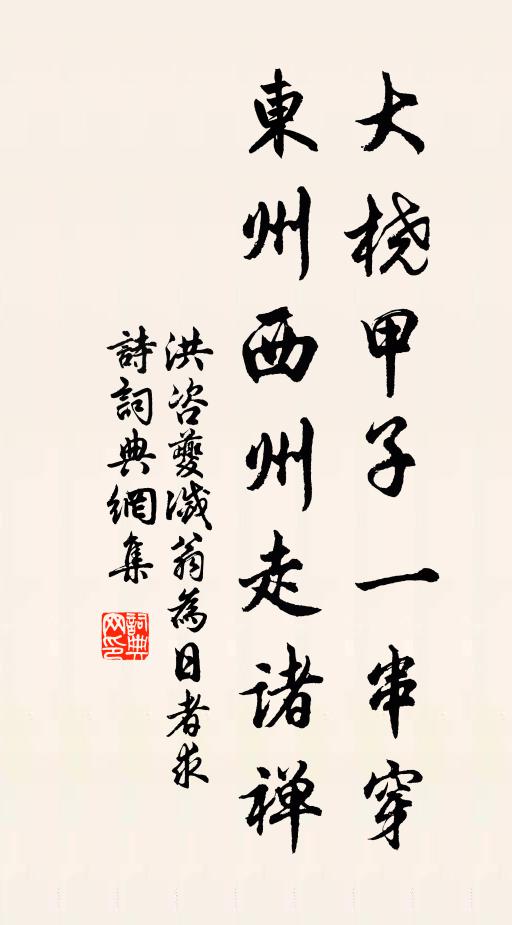 大桡甲子一串穿
東州西州走诸禅
洪咨夔滅翁為日者求
詩詞典網集
詞典网印